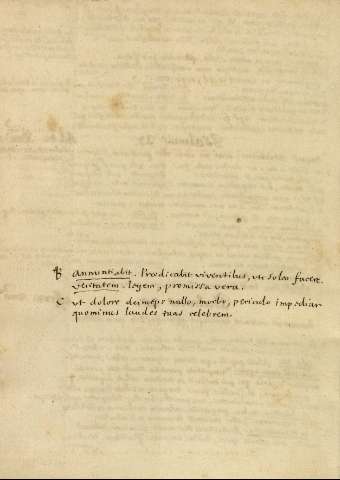 B annuntiabit. Prædicabit viventibus, ut solon facere.
veritatem. legem, promissa vera.
C ut dolore deinceps nullo, morbo, periculo impediar
quominus laudes tuas celebrem.